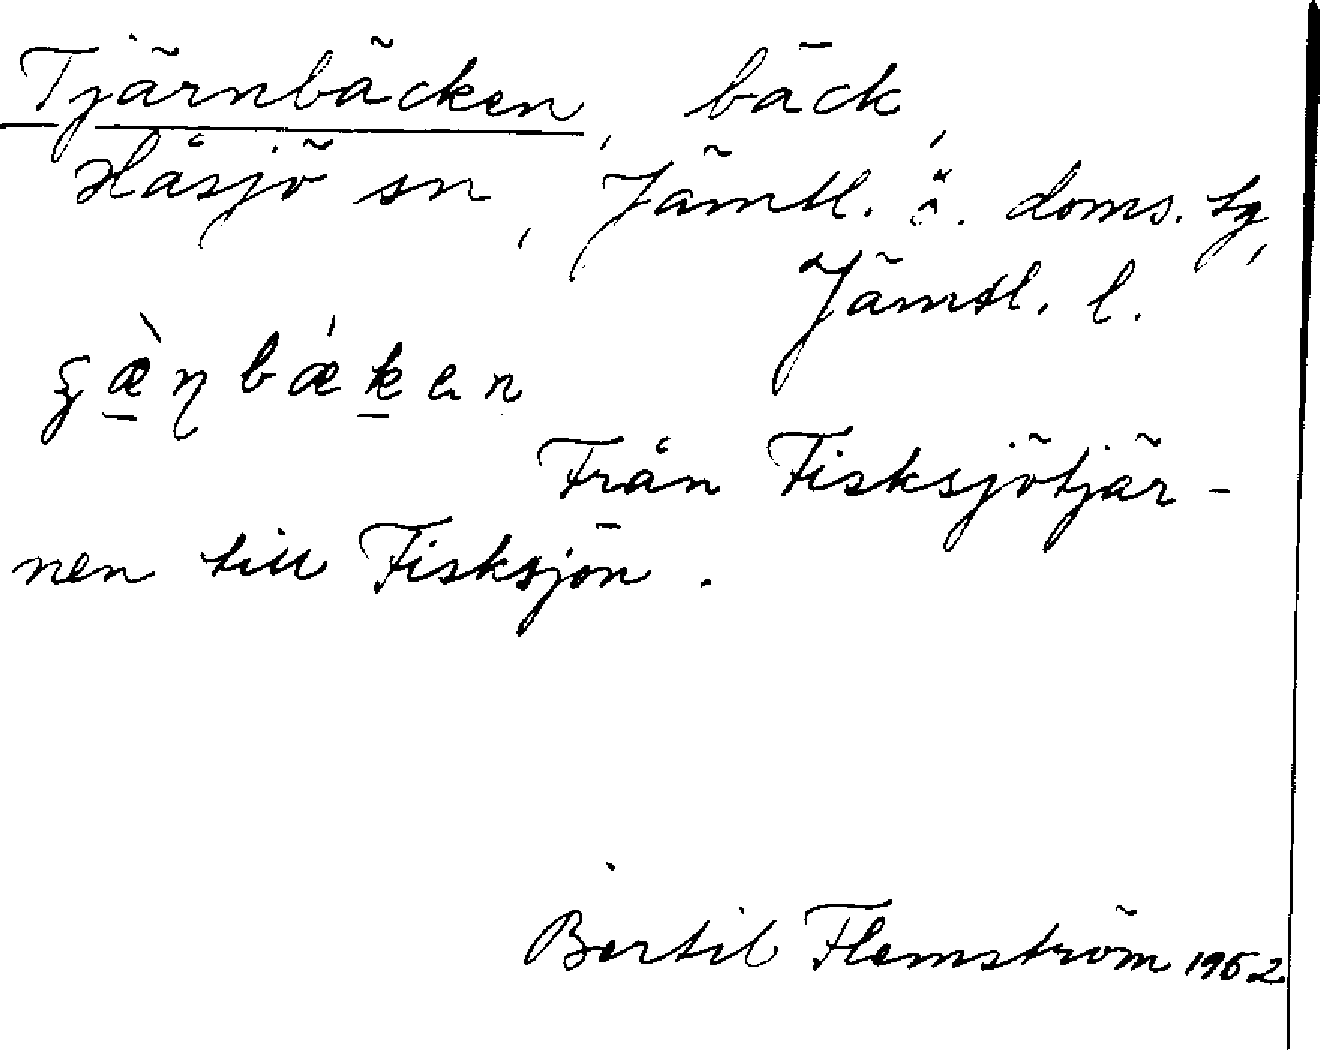 Tjärnbäcken, bäck,
Håsjö sn, Jämtl. ö. doms. tg,
Jämtl. l.
Från Fisksjötjär-
nen till Fisksjön.
Bertil Flemström 1962